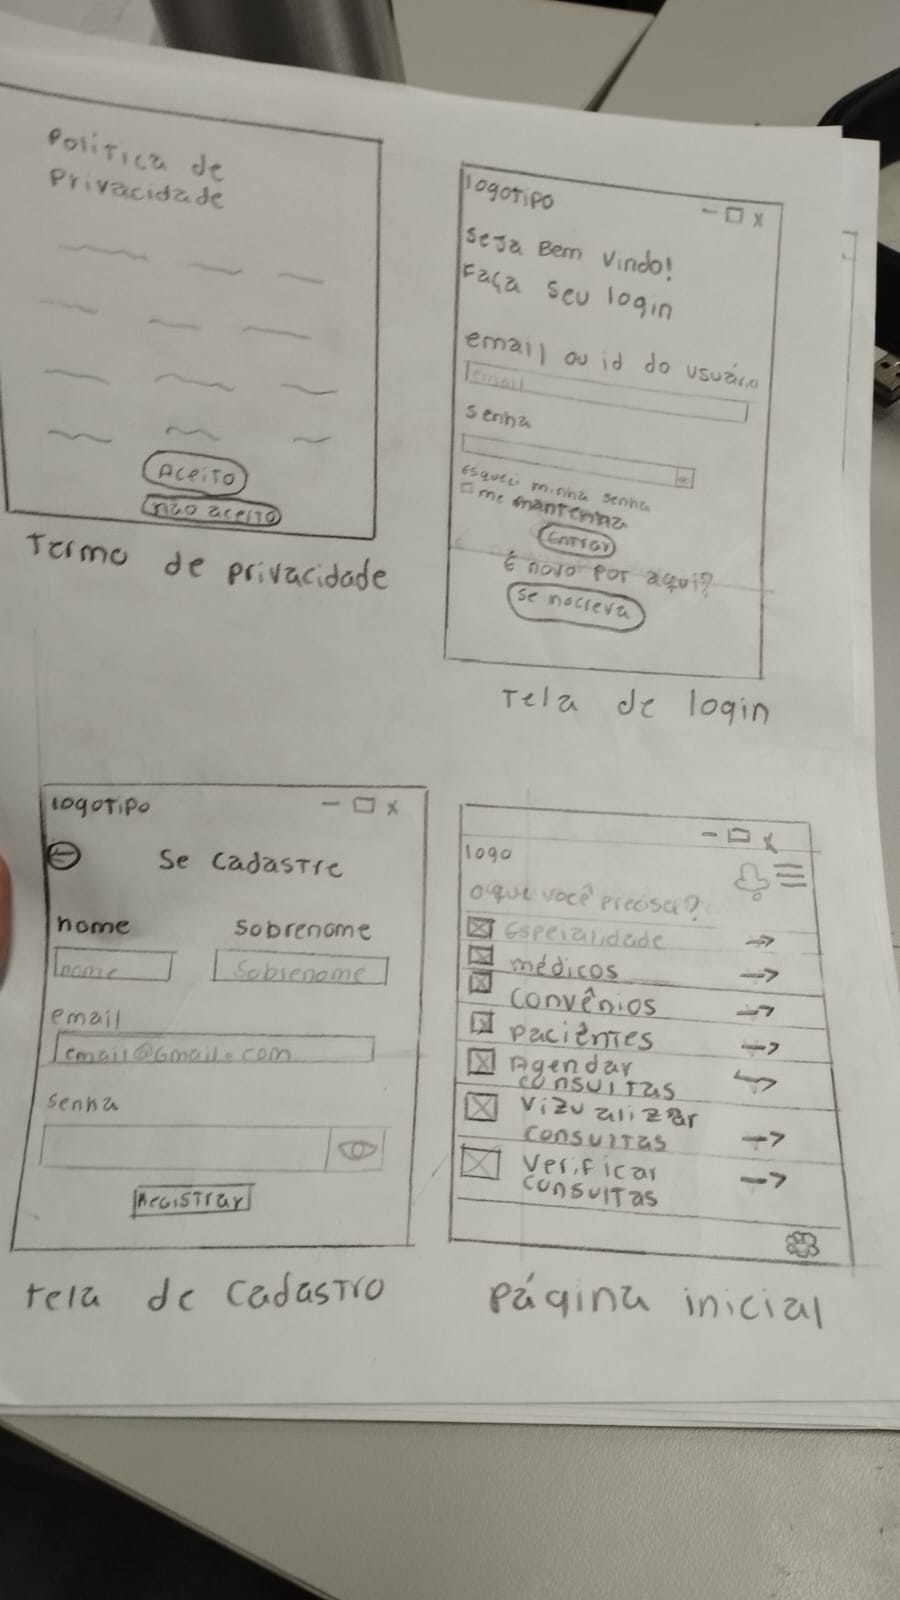 Política de
Privacidade
Aceito
não aceito
Termo de privacidade
logotipo
seja Bem vindo!
Faça seu login
email ou id do usuário
email
senha
Esqueci minha senha
me mantenha
Entrar
É novo por aqui?
se inscreva
Tela de login
logotipo
Se cadastre
nome sobrenome
nome sobrenome
email
email@Gmail.com
senha
Registrar
tela de cadastro
logo
o que você precisa?
Espeialidade
médicos
convênios
paciêntes
Agendar
consultas
vizualizar
consultas
verificar
consultas
página inicial